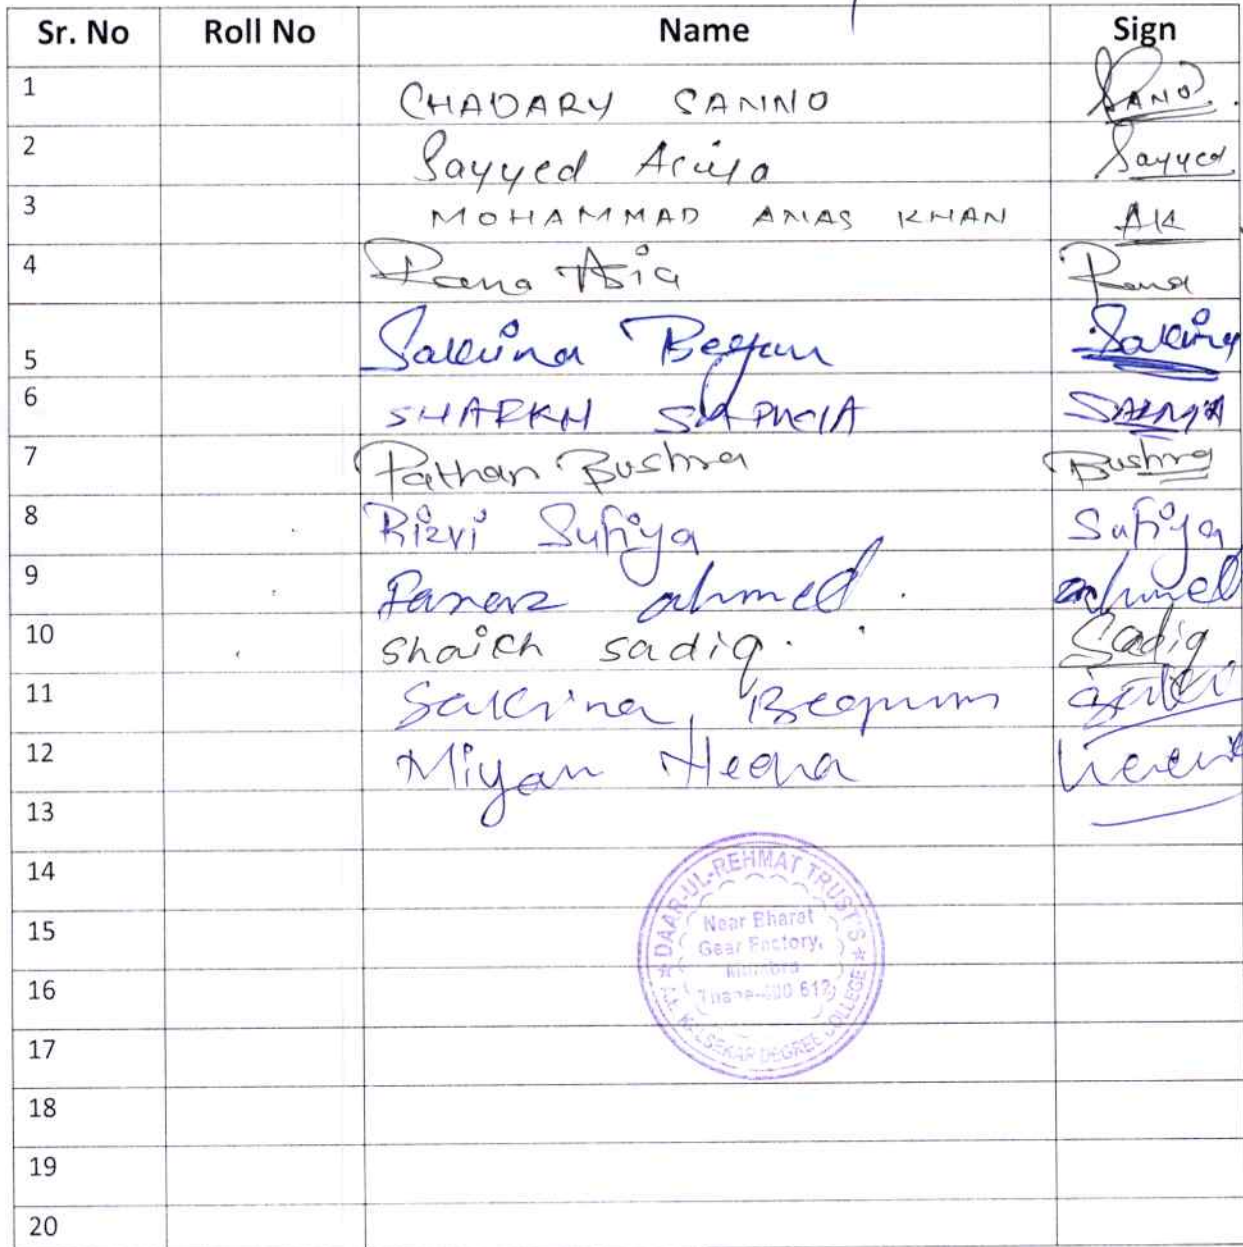 Sr. No Roll No Name Sign
1 CHADARY SANNO SANO
2 Sayyed Sayyed
3 MOHAMMAD ANAS KHAN AK
4 Rana Asia Rana
5 Sakina Begum Sakina
6
7 Pathan Bushra Bushra
8 Rizvi Sufiya Sufiya
9 ahmed ahmed
10 Shaikh sadiq. Sadiq
11 Sakina Begum
12 Miyan Heena
13
14
15
16
17
18
19
20
DAAR-UL-REHMAT TRUST'S
Near Bharat
Gear Factory,
Mumbra
Thane-400 612
A.E. KALSEKAR DEGREE COLLEGE